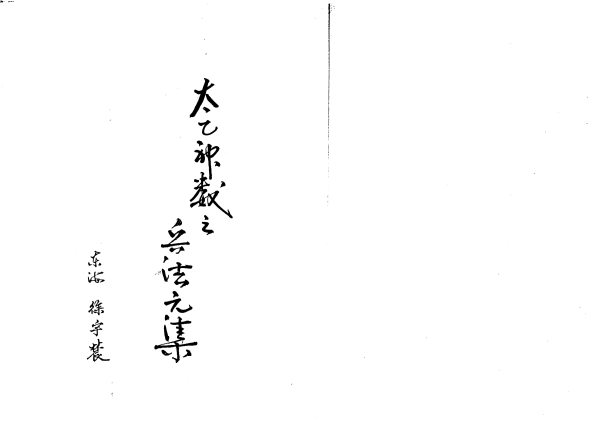 太乙神数之
兵法元集
东海 徐宇